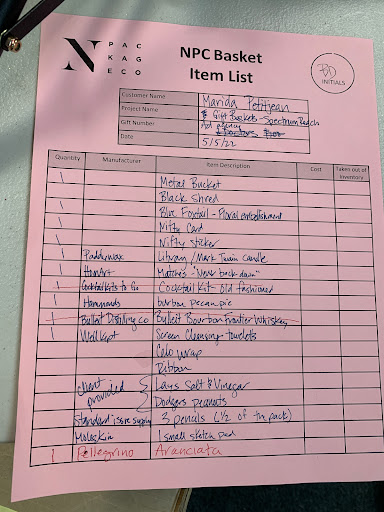 N PAC
KAG
ECO
NPC Basket
Item List
INITIALS
Customer Name Marida Petitjean
Project Name Gift Baskets - Spectrum Reach
Gift Number Ad agency
Date 5/5/22
Quantity Manufacturer Item Description Cost Taken out of inventory
1 Metal Bucket
1 Black Shred
1 Blue Foxtail - Floral embellishment
1 Nifty Card
1 Nifty Sticker
1 Paddywax Library / Mark Twain Candle
1 HomArt Matches - "Never back down"
1 Cocktail Kits to Go Cocktail Kit - Old fashioned
1 Hammonds burbon pecan pie
1 Bulleit Distilling Co Bulleit Bourbon Frontier Whiskey
1 Well Kept Screen Cleansing towelets
Celo wrap
Ribbon
Client provided Lays Salt & Vinegar
Dodgers peanuts
Standard issue supply 3 pencils (1/2 of the pack)
Moleskin 1 small sketch pad
1 Pellegrino Aranciata